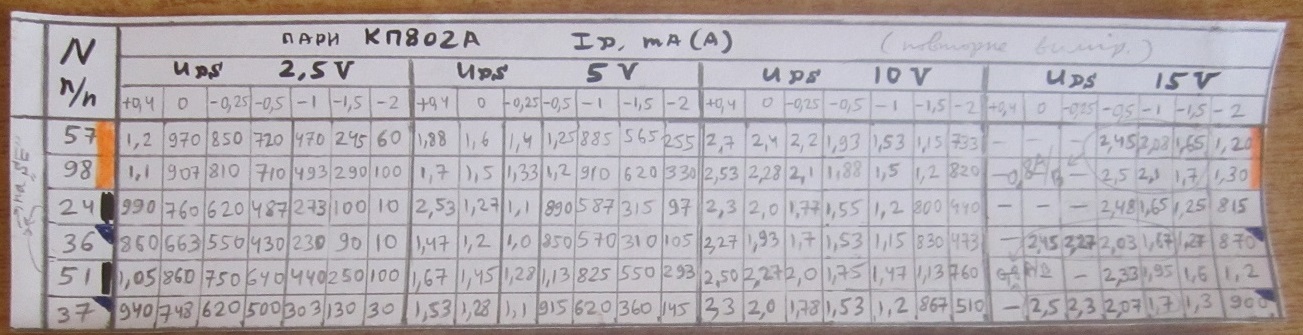 N п/п ПАРИ КП802А ID, mA (A) (повторне вимір.)
UDS 2,5 V UDS 5 V UDS 10 V UDS 15 V
+0,4 0 -0,25 -0,5 -1 -1,5 -2 +0,4 0 -0,25 -0,5 -1 -1,5 -2 +0,4 0 -0,25 -0,5 -1 -1,5 -2 +0,4 0 -0,25 -0,5 -1 -1,5 -2
57 1,2 970 850 720 470 245 60 1,88 1,6 1,4 1,25 885 565 255 2,7 2,4 2,2 1,93 1,53 1,15 733 - - - 2,45 2,08 1,65 1,20
98 1,1 907 810 710 493 290 100 1,7 1,5 1,33 1,2 910 620 330 2,53 2,28 2,1 1,88 1,5 1,2 820 - - 2,5 2,1 1,7 1,30
24 990 760 620 487 273 100 10 2,53 1,27 1,1 890 587 315 97 2,3 2,0 1,77 1,55 1,2 800 440 - - - 2,48 1,65 1,25 815
36 860 663 550 430 230 90 10 1,47 1,2 1,0 850 570 310 105 2,27 1,93 1,7 1,53 1,15 830 473 - 2,45 2,27 2,03 1,67 1,27 870
51 1,05 860 750 640 440 250 100 1,67 1,45 1,28 1,13 825 550 293 2,50 2,27 2,0 1,75 1,47 1,13 760 - 2,33 1,95 1,6 1,2
37 940 748 620 500 303 130 30 1,53 1,28 1,1 915 620 360 145 2,3 2,0 1,78 1,53 1,2 867 510 - 2,5 2,3 2,07 1,7 1,3 900